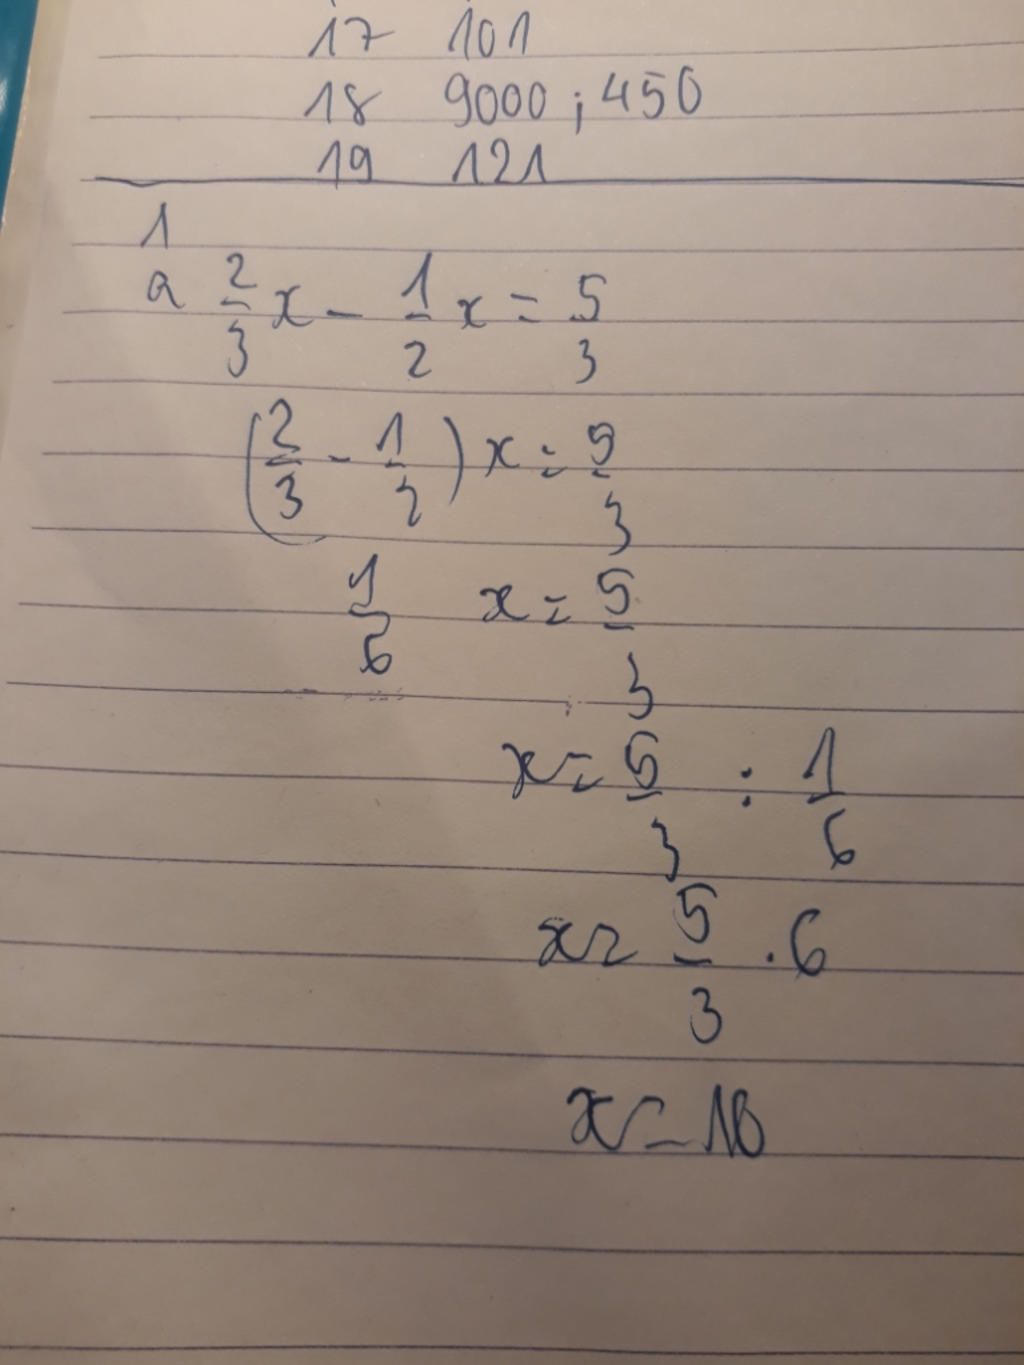 17 101
18 9000 ; 450
19 121
1
a 2/3 x - 1/2 x = 5/3
(2/3 - 1/2) x = 5/3
1/6 x = 5/3
x = 5/3 : 1/6
x = 5/3 . 6
x = 10